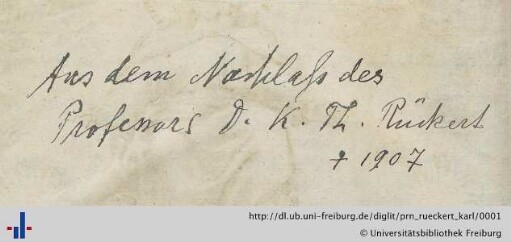 Aus dem Nachlaß des
Professors D. K. Th. Rückert
† 1907
http://dl.ub.uni-freiburg.de/diglit/prn_rueckert_karl/0001
© Universitätsbibliothek Freiburg